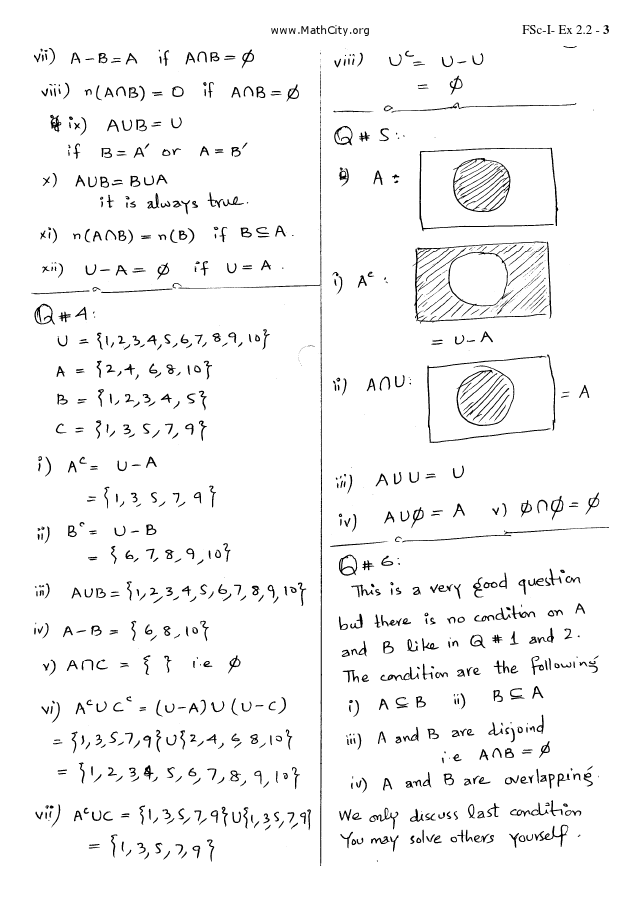 www.MathCity.org
FSc-I- Ex 2.2 - 3
vii) A-B=A if A∩B=∅
viii) n(A∩B) = 0 if A∩B=∅
ix) A∪B = U
if B=A' or A=B'
x) A∪B=B∪A
it is always true.
xi) n(A∩B) = n(B) if B⊆A.
xii) U-A = ∅ if U=A.
Q # 4:
U = {1,2,3,4,5,6,7,8,9,10}
A = {2,4,6,8,10}
B = {1,2,3,4,5}
C = {1,3,5,7,9}
i) Aᶜ= U-A
= {1,3,5,7,9}
ii) Bᶜ= U-B
= {6,7,8,9,10}
iii) A∪B={1,2,3,4,5,6,7,8,9,10}
iv) A-B = {6,8,10}
v) A∩C = { } i.e ∅
vi) Aᶜ∪Cᶜ = (U-A)∪(U-C)
= {1,3,5,7,9}∪{2,4,6,8,10}
= {1,2,3,4,5,6,7,8,9,10}
vii) Aᶜ∪C = {1,3,5,7,9}∪{1,3,5,7,9}
= {1,3,5,7,9}
viii) Uᶜ= U-U
= ∅
Q # 5:.
A :
i) Aᶜ:
= U-A
ii) A∩U: = A
iii) A∪U = U
iv) A∪∅ = A v) ∅∩∅ = ∅
Q # 6:
This is a very good question
but there is no condition on A
and B like in Q # 1 and 2.
The condition are the following
i) A⊆B ii) B⊆A
iii) A and B are disjoind
i.e A∩B=∅
iv) A and B are overlapping.
We only discuss last condition
You may solve others yourself.